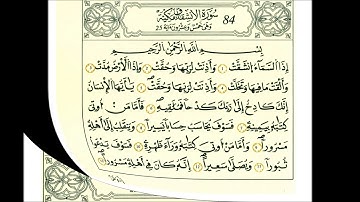 سُورَةُ الانْشِقَاقِ مَكِّيَّة
84
وَهِيَ خَمْسٌ وَعِشْرُونَ آيَة 25
بِسْمِ اللَّهِ الرَّحْمَٰنِ الرَّحِيمِ
إِذَا السَّمَاءُ انْشَقَّتْ ١ وَأَذِنَتْ لِرَبِّهَا وَحُقَّتْ ٢ وَإِذَا الْأَرْضُ مُدَّتْ ٣
وَأَلْقَتْ مَا فِيهَا وَتَخَلَّتْ ٤ وَأَذِنَتْ لِرَبِّهَا وَحُقَّتْ ٥ يَا أَيُّهَا الْإِنْسَانُ
إِنَّكَ كَادِحٌ إِلَىٰ رَبِّكَ كَدْحًا فَمُلَاقِيهِ ٦ فَأَمَّا مَنْ أُوتِيَ
كِتَابَهُ بِيَمِينِهِ ٧ فَسَوْفَ يُحَاسَبُ حِسَابًا يَسِيرًا ٨ وَيَنْقَلِبُ إِلَىٰ أَهْلِهِ
مَسْرُورًا ٩ وَأَمَّا مَنْ أُوتِيَ كِتَابَهُ وَرَاءَ ظَهْرِهِ ١٠ فَسَوْفَ يَدْعُوا
ثُبُورًا ١١ وَيَصْلَىٰ سَعِيرًا ١٢ إِنَّهُ كَانَ فِي أَهْلِهِ مَسْرُورًا ١٣